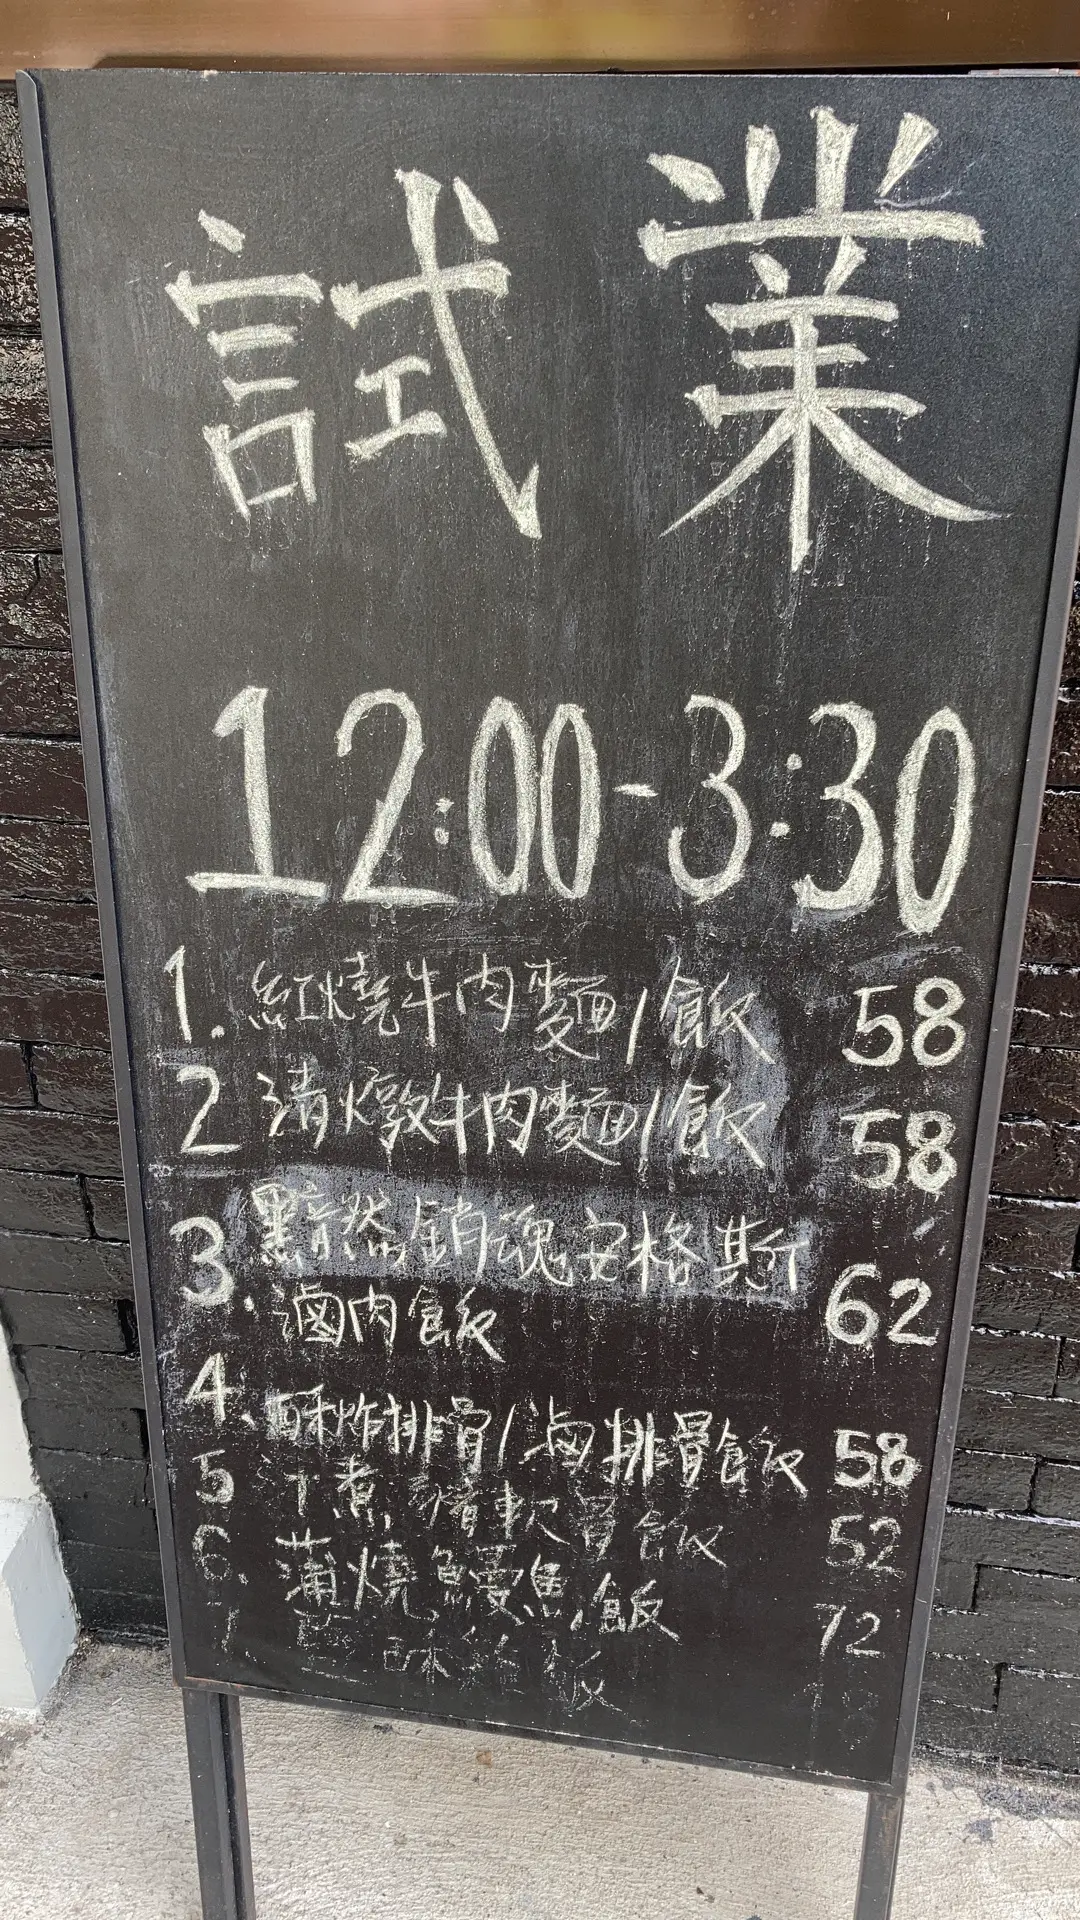 試業
12:00-3:30
1. 紅燒牛肉麵/飯 58
2 清燉牛肉麵/飯 58
3. 黯然銷魂安格斯 62
滷肉飯
4. 酥炸排骨/滷排骨飯 58
5 煮 軟骨飯 52
6. 蒲燒鰻魚飯 72
酥雞飯